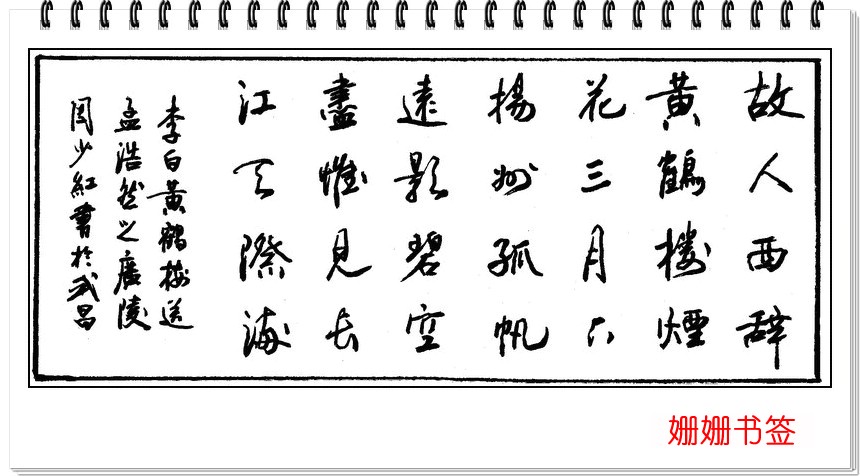 故人西辞
黃鶴楼煙
花三月下
揚州孤帆
遠影碧空
盡惟見長
江天際流
李白黃鶴楼送
孟浩然之廣陵
周少紅書於武昌
姗姗书签